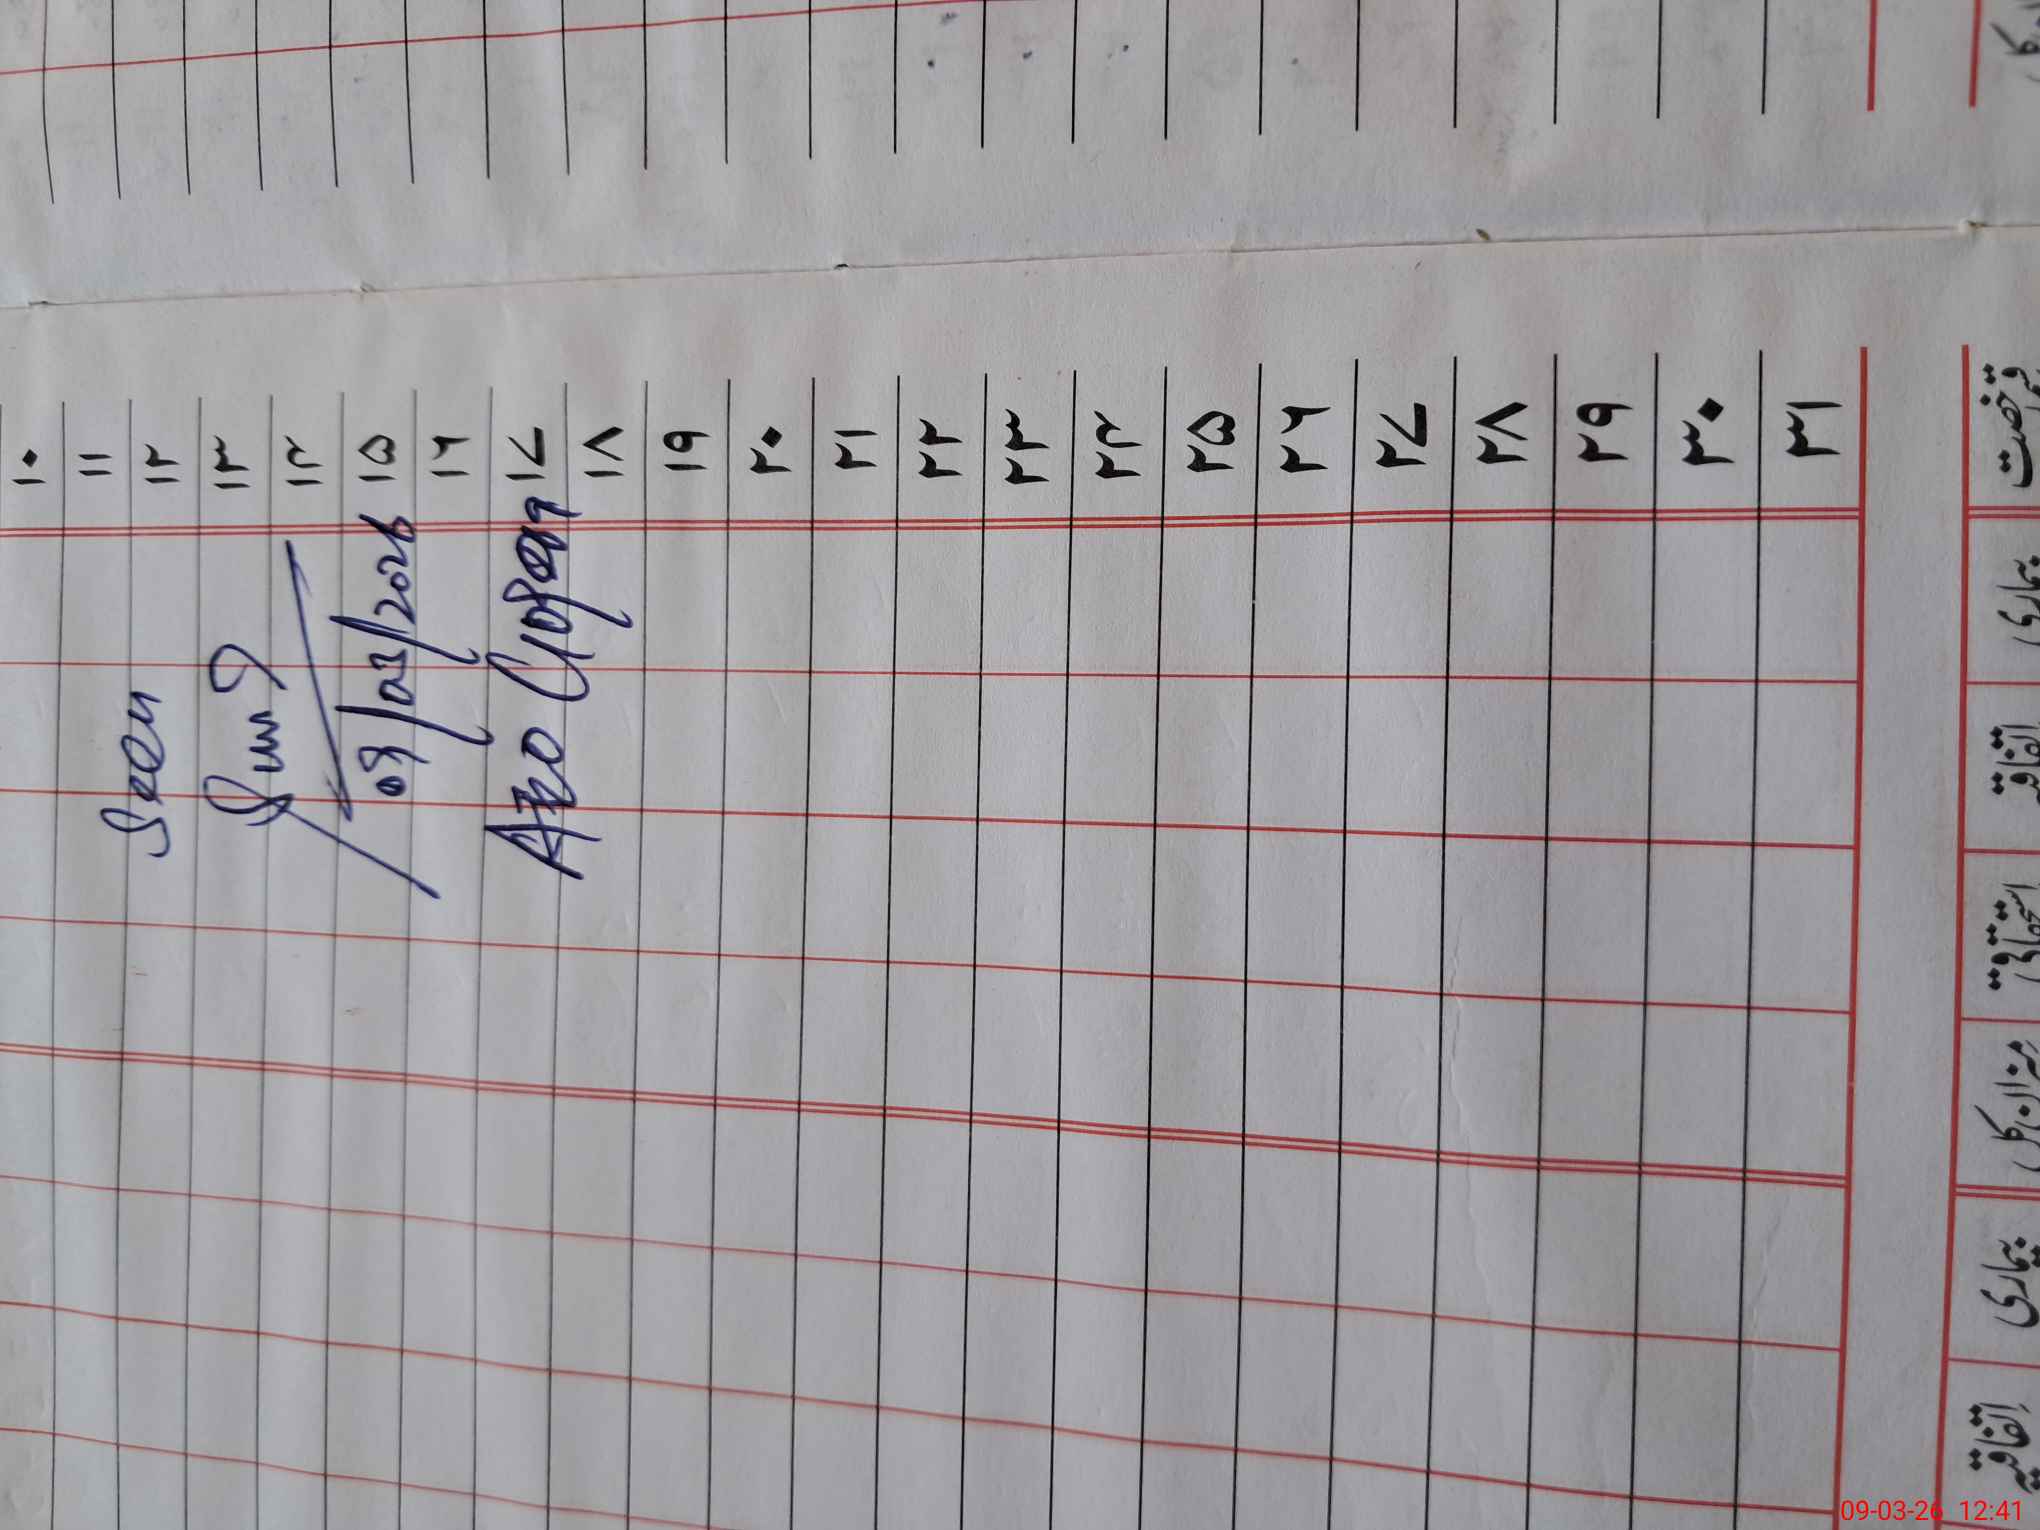 ۱۰
۱۱
۱۲
۱۳
۱۴
۱۵
۱۶
۱۷
۱۸
۱۹
۲۰
۲۱
۲۲
۲۳
۲۴
۲۵
۲۶
۲۷
۲۸
۲۹
۳۰
۳۱
Seen
09/03/2026
رخصت
بیماری
اتفاقیہ
استحقاقی
میزان کل
بیماری
اتفاقیہ
09-03-26 12:41